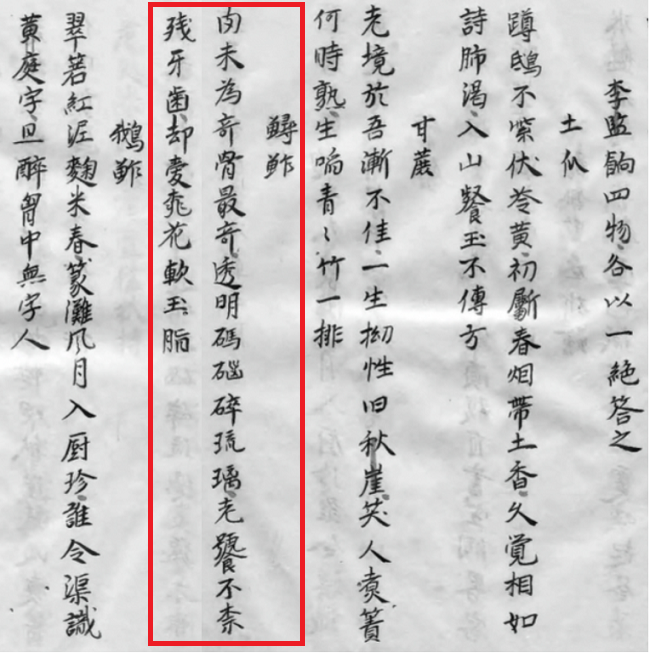 李監餉四物各以一絶答之
土瓜
蹲鴟不紫伏苓黄初斸春烟帶土香久覚相如
詩肺渴入山餐玉不傳方
甘蔗
老境於吾漸不佳一生拗性旧秋崖笑人煑簀
何時熟生啗青〻竹一排
鱘鮓
肉未為奇脊最奇透明碼碯碎琉璃老饕不柰
残牙歯却愛桃花軟玉脂
鵝鮓
翠箬紅泥麴米春篆灘風月入厨珍誰令渠識
黄庭字且醉胷中無字人